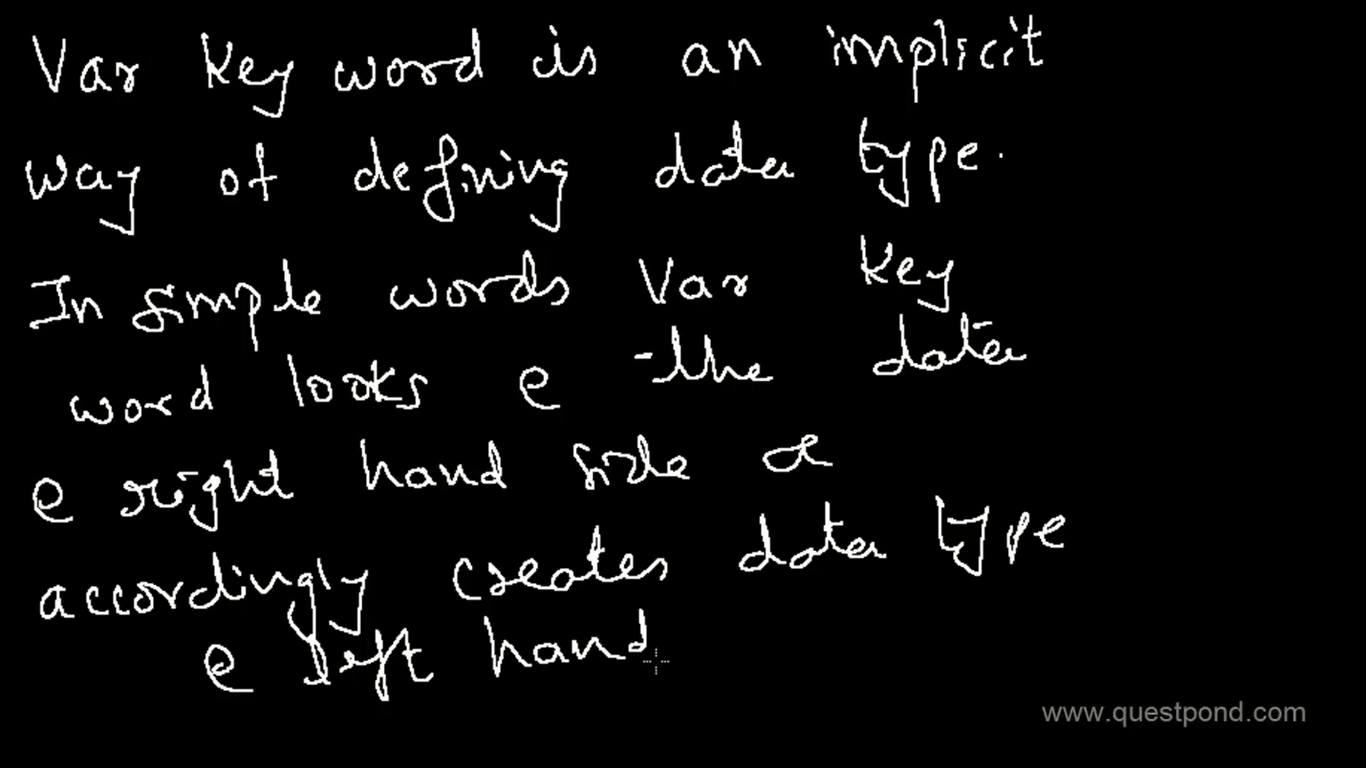 Var Key word is an implicit
way of defining data type.
In simple words Var Key
word looks @ the data
@ right hand side &
accordingly creates data type
@ left hand
www.questpond.com